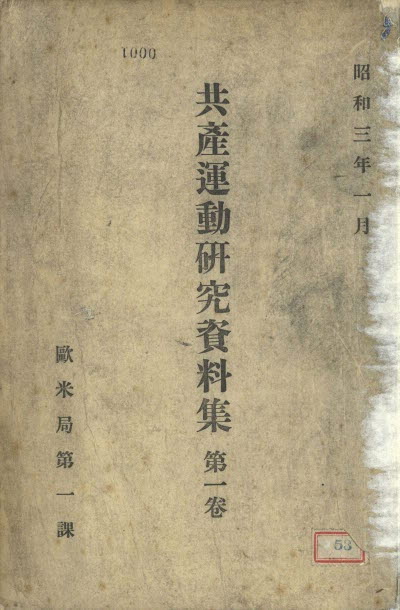 1000
昭和三年一月
共產運動研究資料集 第一卷
歐米局第一課
53